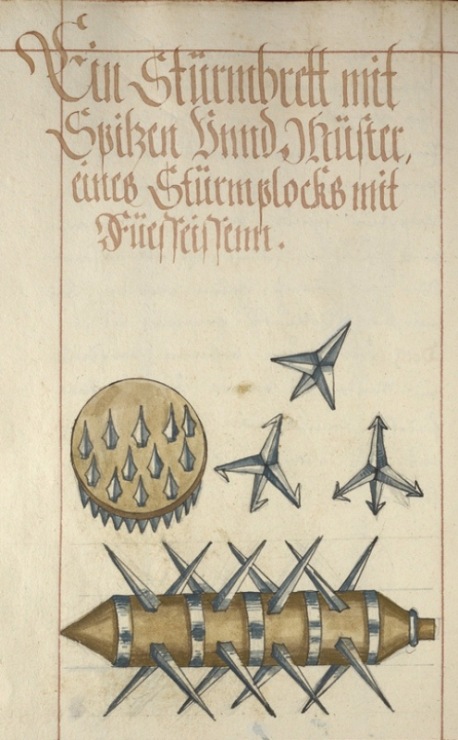 Ein Stürmbrett mit
Spitzen Vnnd Müster,
eines Stürmplocks mit
Füesseissenn.